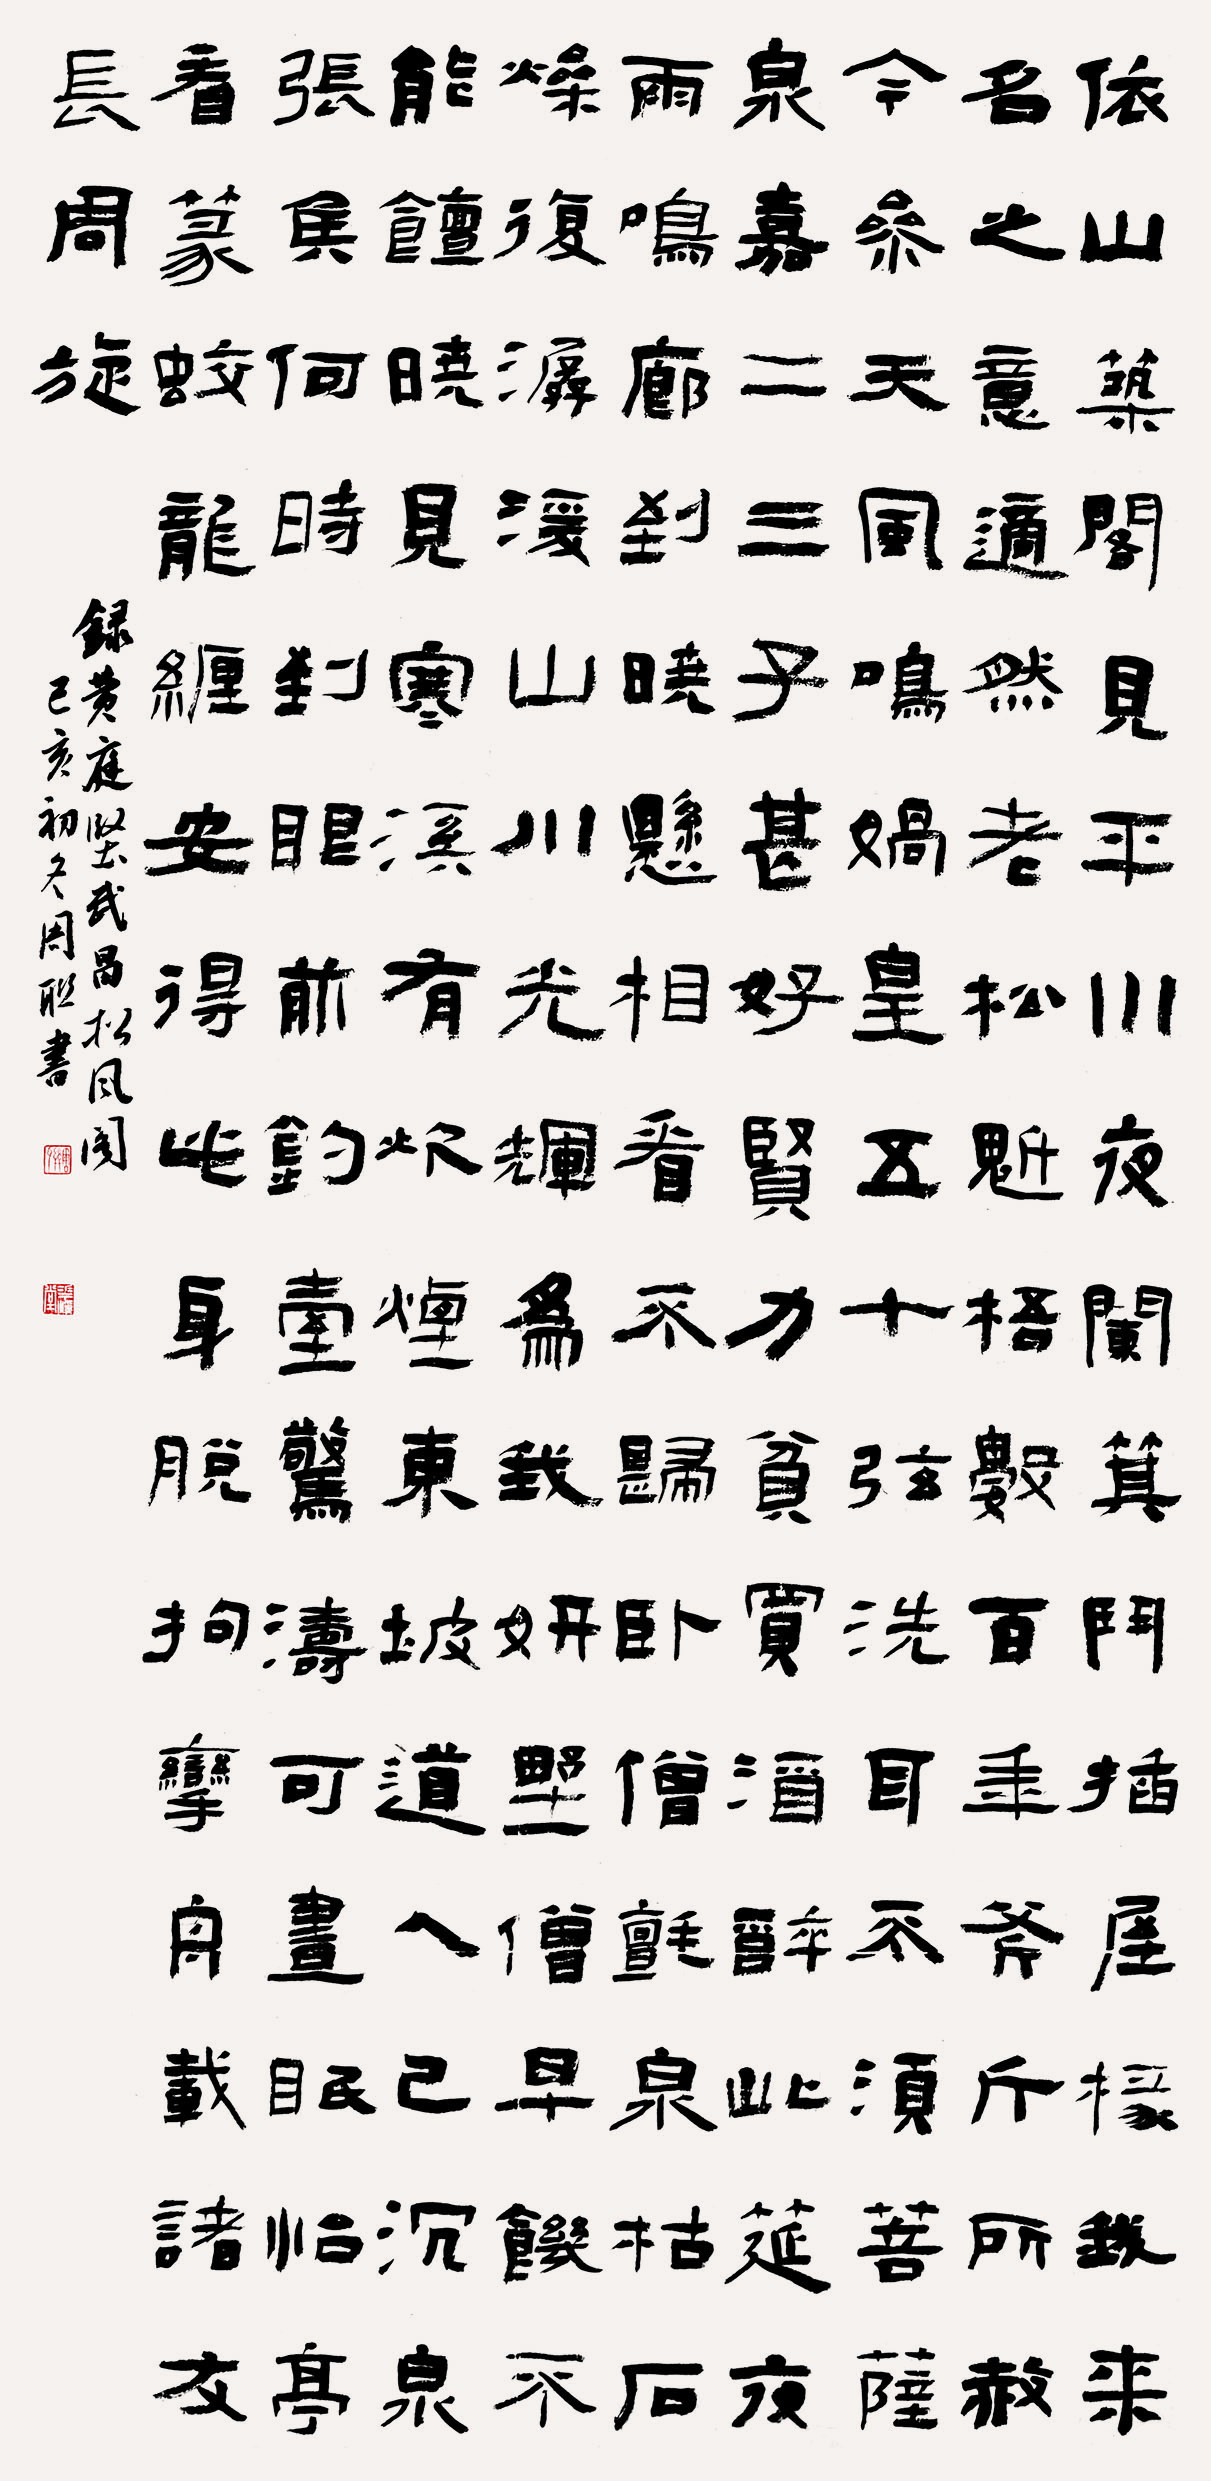 依山築閣見平川夜闌箕鬥插屋椽我来
名之意適然老松魁梧數百年斧斤所赦
今參天風鳴媧皇五十弦洗耳不須菩薩
泉嘉二三子甚好賢力貧買酒醉此筵夜
雨鳴廊到曉懸相看不歸卧僧氈泉枯石
燥復潺湲山川光輝爲我妍野僧早饑不
能饘曉見寒溪有炊煙東坡道人已沉泉
張侯何時到眼前釣臺驚濤可晝眠怡亭
看篆蛟龍纏安得此身脫拘攣舟載諸友
長周旋
録黄庭堅武昌松風閣
己亥初冬周聯書